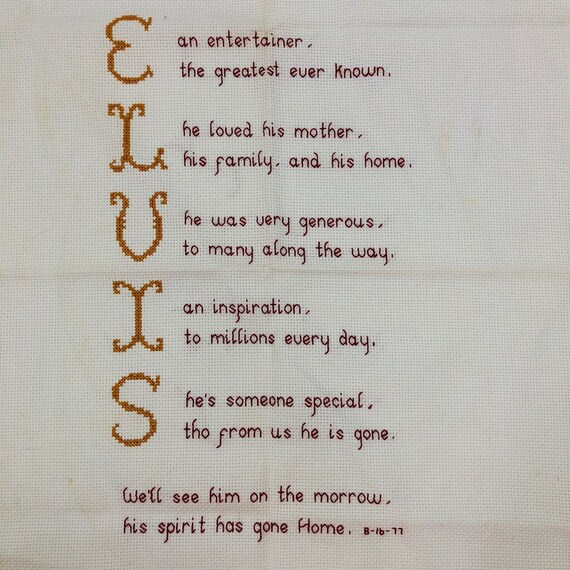 E an entertainer,
the greatest ever known.
L he loved his mother,
his family, and his home.
V he was very generous,
to many along the way.
I an inspiration,
to millions every day.
S he's someone special,
tho from us he is gone.
We'll see him on the morrow,
his spirit has gone Home. 8-16-77